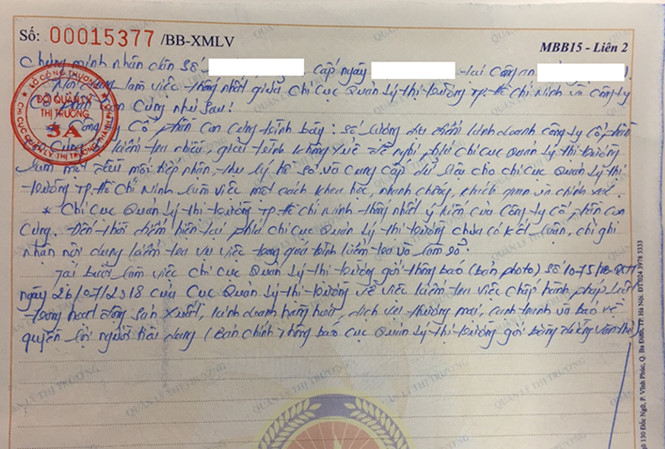 Số: 00015377 /BB-XMLV
MBB15 - Liên 2
Chứng minh nhân dân số cấp ngày tại Công an
Nội dung làm việc thống nhất giữa Chi cục Quản lý thị trường TP. Hồ Chí Minh và Công ty
Cổ phần Con Cưng như sau:
* Công ty Cổ phần Con Cưng trình bày: số lượng địa điểm kinh doanh công ty Cổ phần
Con Cưng kiểm tra nhiều, giải trình không kịp đề nghị phía chi cục Quản lý thị trường
làm một đầu mối tiếp nhận, thụ lý hồ sơ và cung cấp dữ liệu cho chi cục Quản lý thị
trường TP. Hồ Chí Minh làm việc một cách khoa học, nhanh chóng, khách quan và chính xác.
* Chi cục Quản lý thị trường TP. Hồ chí minh thống nhất ý kiến của Công ty cổ phần Con
Cưng. Đến thời điểm hiện tại phía Chi cục Quản lý thị trường chưa có kết luận, chỉ ghi
nhận nội dung kiểm tra vụ việc trong quá trình kiểm tra và làm rõ.
Tại buổi làm việc chi cục Quản lý thị trường gởi thông báo (bản photo) số 1075/
ngày 26/07/2018 của Cục Quản lý thị trường về việc kiểm tra việc chấp hành pháp luật
trong hoạt động sản xuất, kinh doanh hàng hóa, dịch vụ thương mại, cạnh tranh và bảo vệ
quyền lợi người tiêu dùng (Bản chính thông báo cục Quản lý thị trường gởi bằng đường văn thư)
SỞ CÔNG THƯƠNG
CHI CỤC QUẢN LÝ THỊ TRƯỜNG
ĐỘI QUẢN LÝ
THỊ TRƯỜNG
3A
QUẢN LÝ THỊ TRƯỜNG
130 Đốc Ngữ, P. Vĩnh Phúc, Q. Ba Đình, TP. Hà Nội. ĐT: 024 3978 3333